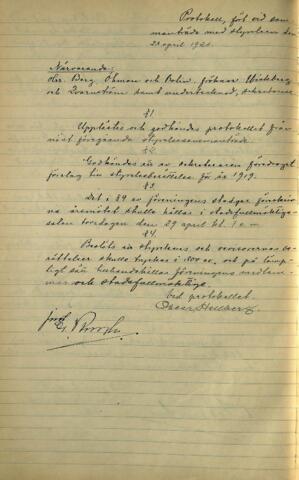 Protokoll, fört vid sam-
manträde med styrelsen den
23 april 1920.
Närvarande:
Hrr. Berg, Öhman och Bolin, fröknar Wickberg
och Qvarnström samt undertecknad, sekreterare.
§1.
Upplästes och godkändes protokollet från
näst föregående styrelsesammanträde.
§2.
Godkändes av sekreteraren föredraget
förslag till styrelseberättelse för år 1919.
§3.
Det i §9 av föreningens stadgar föreskriv-
na årsmötet skulle hållas i stadsfullmäktige-
salen torsdagen den 29 april kl.
§4.
Beslöts att styrelsens och revisorernas be-
rättelser skulle tryckas i 200 ex. och på lämp-
ligt sätt tillhandahållas föreningens medlem-
mar och stadsfullmäktige.
Vid protokollet
Oscar Hellberg.